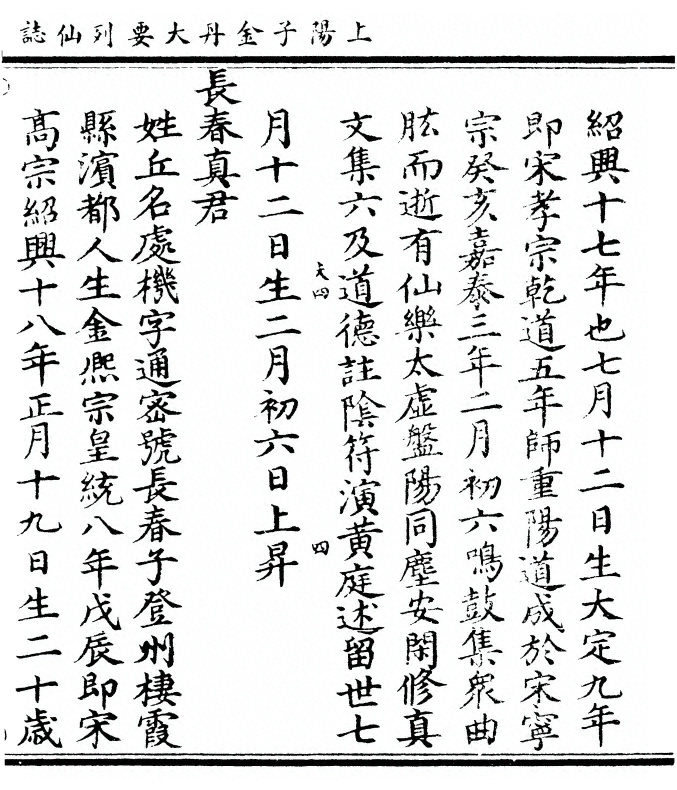 上陽子金丹大要列仙誌
紹興十七年也七月十二日生大定九年
即宋孝宗乾道五年師重陽道成於宋寧
宗癸亥嘉泰三年二月初六鳴鼓集衆曲
肱而逝有仙樂太虛盤陽同塵安閑修真
文集六及道德註陰符演黄庭述留世七
天四
四
月十二日生二月初六日上昇
長春真君
姓丘名處機字通宻號長春子登州棲霞
縣濱都人生金熈宗皇統八年戊辰即宋
髙宗紹興十八年正月十九日生二十歳